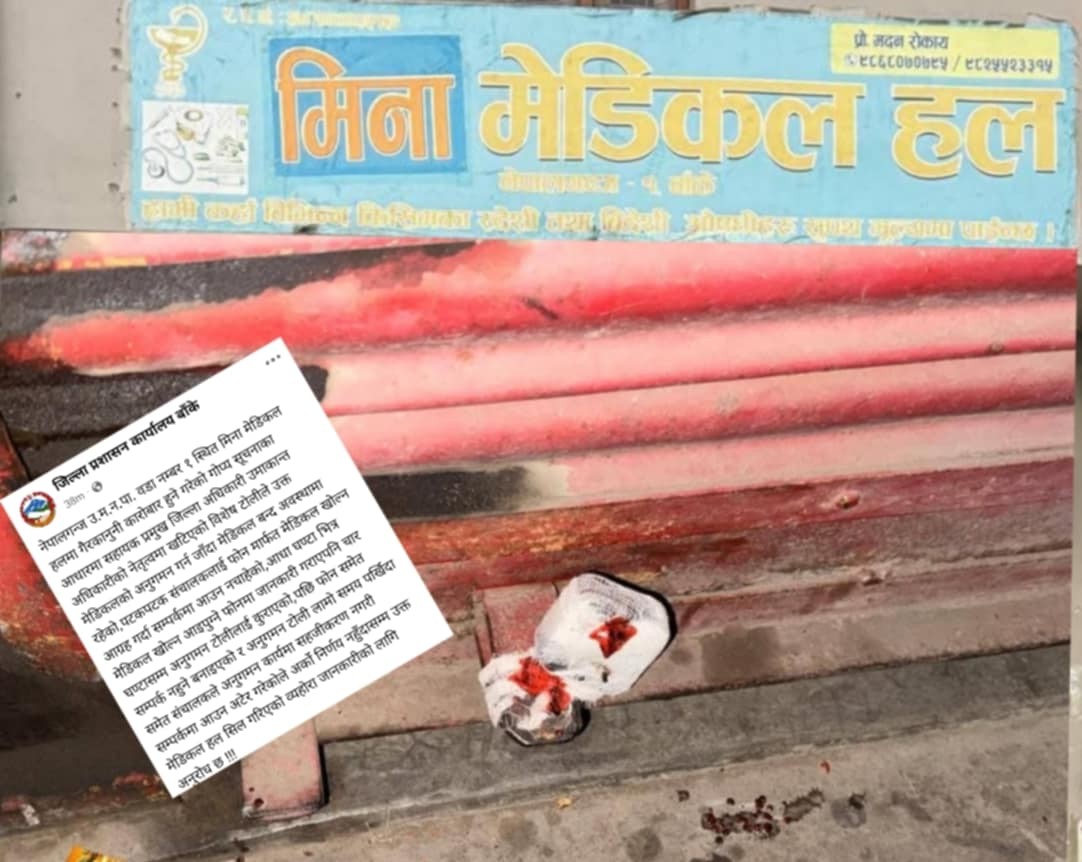 प्रो. मदन रोकाय
मिना मेडिकल हल
नेपालगन्ज - १, बाँके
हामी कहाँ बिभिन्न किसिमका स्वदेशी तथा विदेशी औषधीहरु सुपथ मूल्यमा पाईन्छ ।
जिल्ला प्रशासन कार्यालय बाँके
38m
नेपालगन्ज उ.म.न.पा. वडा नम्बर १ स्थित मिना मेडिकल
हलमा गैरकानुनी कारोबार हुने गरेको गोप्य सूचनाका
आधारमा सहायक प्रमुख जिल्ला अधिकारी उमाकान्त
अधिकारीको नेतृत्वमा खटिएको विशेष टोलीले उक्त
मेडिकलको अनुगमन गर्न जाँदा मेडिकल बन्द अवस्थामा
रहेको,पटकपटक संचालकलाई फोन मार्फत मेडिकल खोल्न
आग्रह गर्दा सम्पर्कमा आउन नचाहेको,आधा घण्टा भित्र
मेडिकल खोल्न आइपुग्ने फोनमा जानकारी गराएपनि चार
घण्टासम्म अनुगमन टोलीलाई कुराएको,पछि फोन समेत
सम्पर्क नहुने बनाइएको र अनुगमन टोली लामो समय पर्खिंदा
समेत संचालकले अनुगमन कार्यमा सहजीकरण नगरी
सम्पर्कमा आउन अटेर गरेकोले अर्को निर्णय नहुँदासम्म उक्त
मेडिकल हल सिल गरिएको व्यहोरा जानकारीको लागि
अनुरोध छ !!!